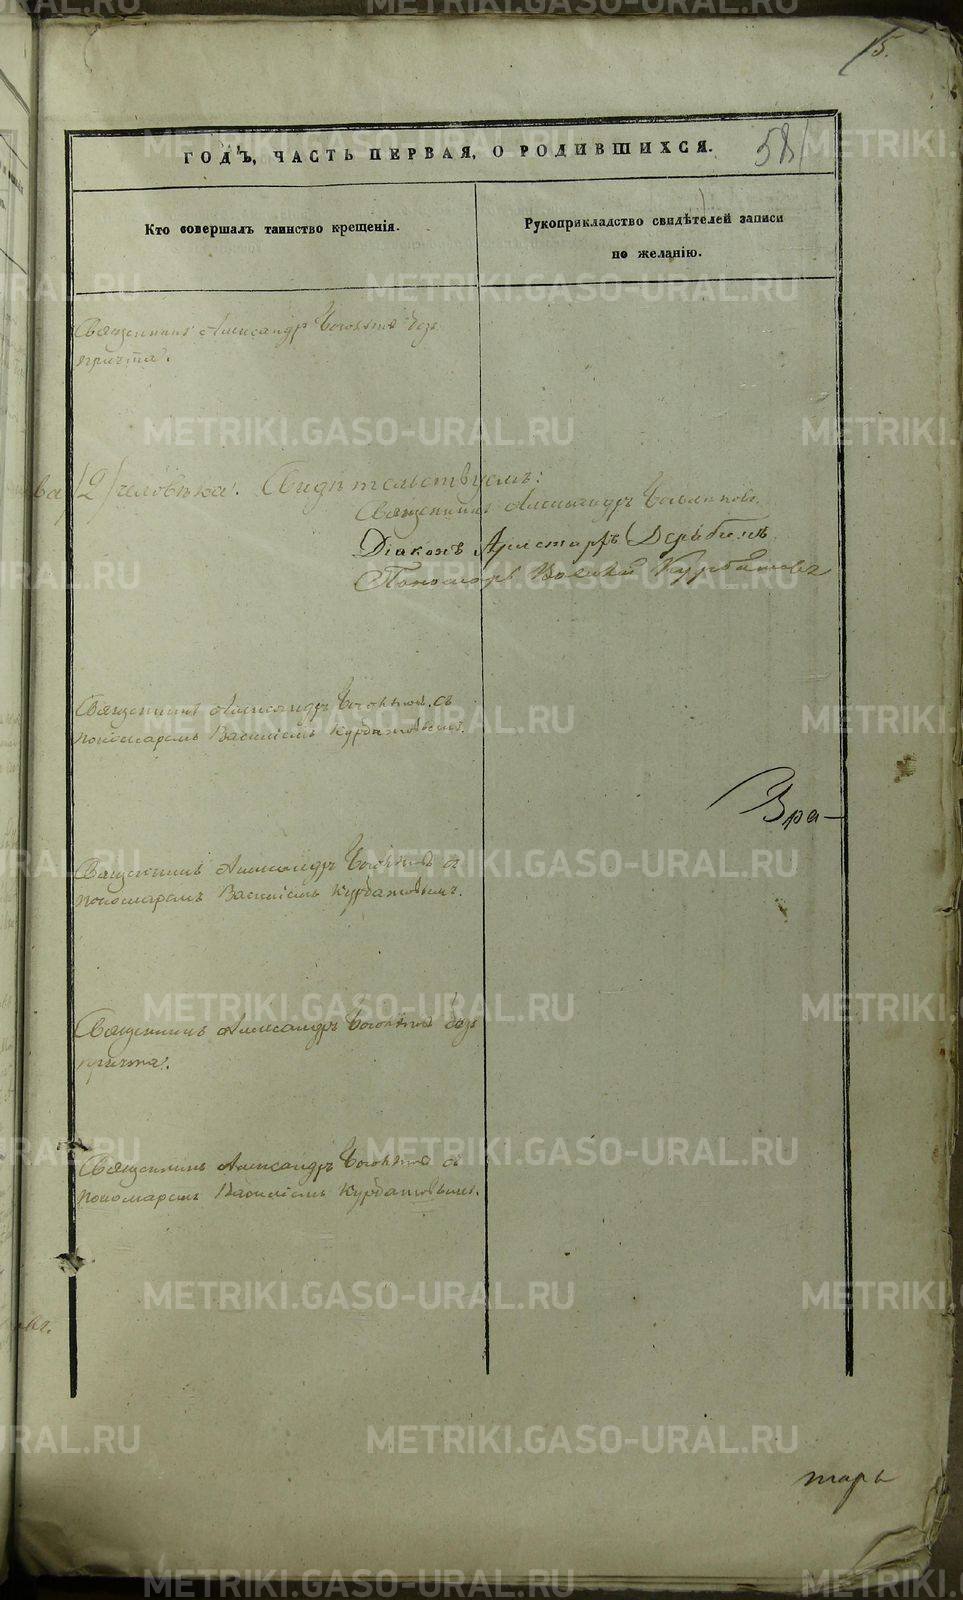 5.
58
ГОДЪ, ЧАСТЬ ПЕРВАЯ, О РОДИВШИХСЯ.
Кто совершалъ таинство крещенія.
Рукоприкладство свидѣтелей записи
по желанію.
Священникъ Александръ безъ
причта.
ва /2/ человѣка. Свидѣтельствуемъ:
Священникъ Александръ
Діаконъ Аристархъ Дерябинъ
Пономарь Василій Курбатовъ
Священникъ Александръ съ
пономаремъ Василіемъ Курбатовымъ.
Зра-
Священникъ Александръ съ
пономаремъ Василіемъ Курбатовымъ.
Священникъ Александръ безъ
причта.
Священникъ Александръ съ
пономаремъ Василіемъ Курбатовымъ.
тарь
METRIKI.GASO-URAL.RU